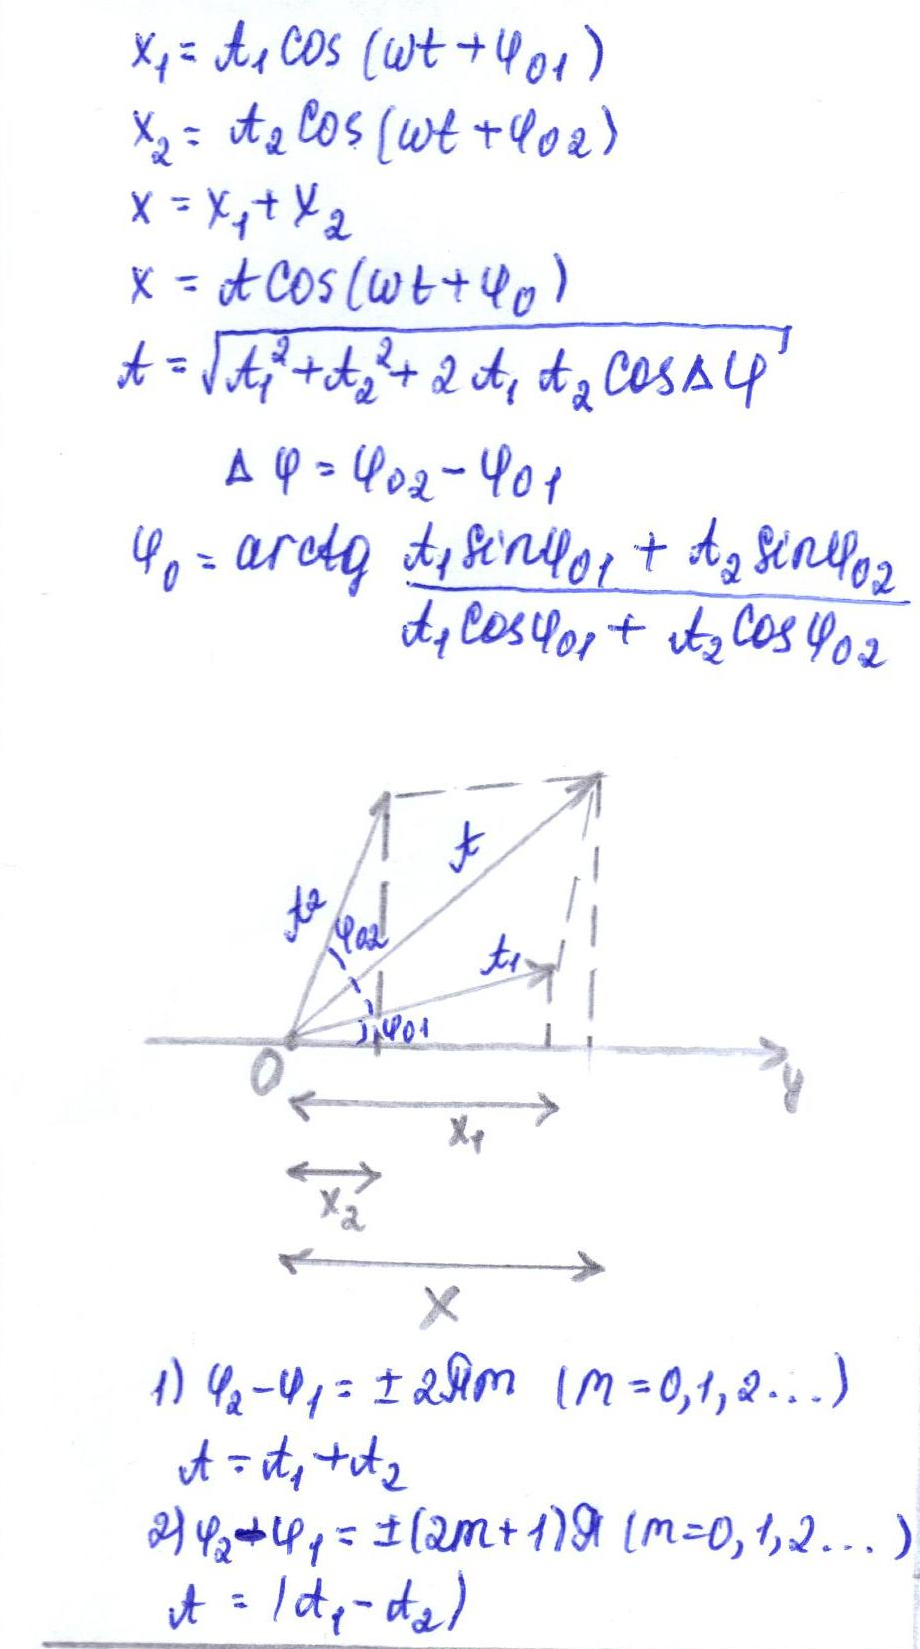 x₁ = A₁ cos (ωt + φ₀₁)
x₂ = A₂ cos (ωt + φ₀₂)
x = x₁ + x₂
x = A cos (ωt + φ₀)
A = √(A₁² + A₂² + 2 A₁ A₂ cos Δφ)
Δφ = φ₀₂ - φ₀₁
φ₀ = arctg (A₁ sinφ₀₁ + A₂ sinφ₀₂) / (A₁ cosφ₀₁ + A₂ cosφ₀₂)
A
A₂
φ₀₂
A₁
φ₀₁
O
y
x₁
x₂
x
1) φ₂ - φ₁ = ± 2πm (m = 0, 1, 2 ...)
A = A₁ + A₂
2) φ₂ - φ₁ = ± (2m + 1)π (m = 0, 1, 2 ...)
A = |A₁ - A₂|